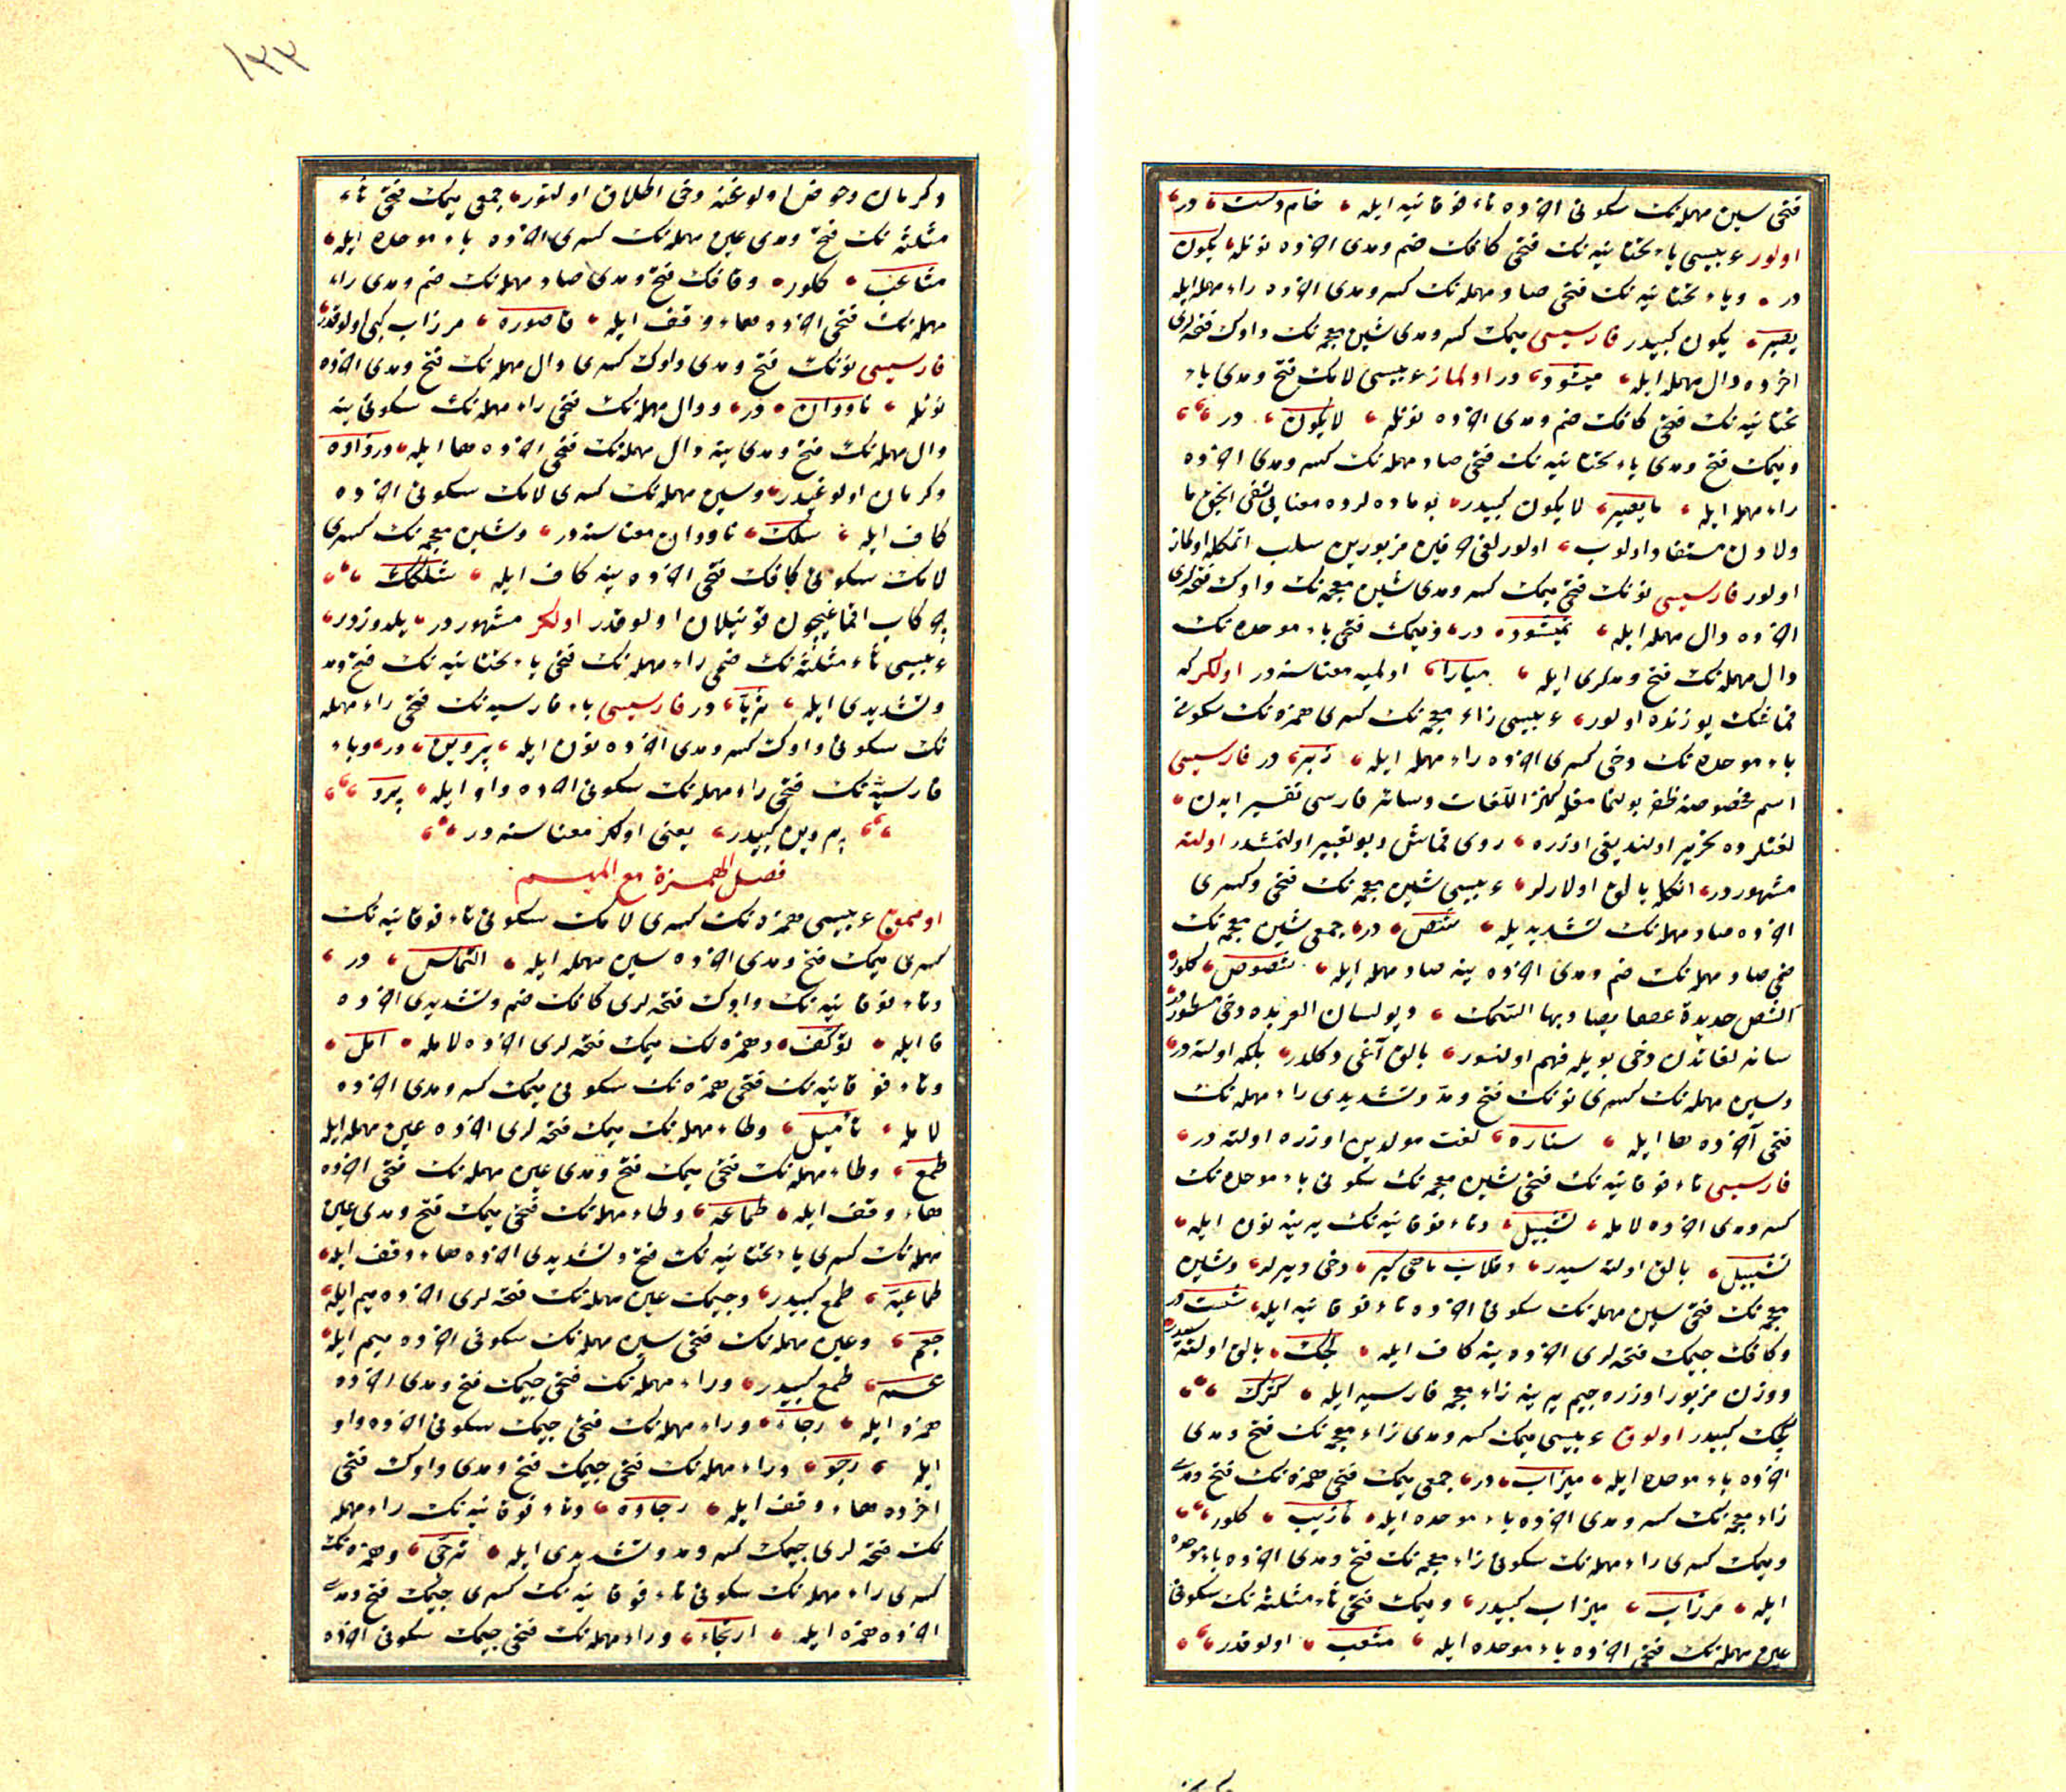 فتحی سین مهمله‌نک سکونی اخرده تاء فوقانیه ایله خام دست در
اولور عربیسی یاء تحتانیه‌نک فتحی کافک ضم و مدی اخرده نونله یکون
در ویاء تحتانیه‌نک فتحی صاد مهمله‌نک کسر و مدی اخرده راء مهمله ایله
یصیر یکون کبیدر فارسیسی میمک کسر و مدی شین معجمه‌نک واوک فتحه‌لری
اخرده دال مهمله ایله میشود در اولماز عربیسی لامک فتح و مدی یاء
تحتانیه‌نک فتحی کافک ضم و مدی اخرده نونله لایکون در
ومیمک فتح و مدی یاء تحتانیه‌نک فتحی صاد مهمله‌نک کسر و مدی اخرده
راء مهمله ایله مایصیر لایکون کبیدر بو ماده‌لرده معنایی نفی ایچون ما
ولادن مستفاد اولوب اولور لفظی
اولور فارسیسی نونک فتحی میمک کسر و مدی شین معجمه‌نک واوک فتحه‌لری
اخرده دال مهمله ایله نمیشود در ومیمک فتحی باء موحده‌نک
دال مهمله‌نک فتح و مدلری ایله مبادا اولمیه معناسنه در اولکر که
قماشک یوزنده اولور عربیسی زاء معجمه‌نک کسری همزه‌نک سکونی
باء موحده‌نک دخی کسری اخرده راء مهمله ایله زئبر در فارسیسی
اسم مخصوصنه ظفر بولنمامغله کنز اللغات وسائر فارسی تفسیر ایدن
لغتلرده تحریر اولندیغی اوزره روی قماش دیو تعبیر اولنمشدر اولته
مشهور در انکله بالق اولارلر عربیسی شین معجمه‌نک فتحی وکسری
اخرده صاد مهمله‌نک تشدیدیله شص در جمعی شین معجمه‌نک
ضمی صاد مهمله‌نک ضم و مدی اخرده ینه صاد مهمله ایله شصوص کلور
الشص حدیدة عقفاء یصاد بها السمک دیو لسان العربده دخی مسطور در
سائر لغاتدن دخی بویله فهم اولنور بالق آغی دکلدر بلکه اولته در
وسین مهمله‌نک کسری نونک فتح و مد و تشدیدی راء مهمله‌نک
فتحی آخرده ها ایله سناره لغت مولدین اوزره اولته در
فارسیسی تاء فوقانیه‌نک فتحی شین معجمه‌نک سکونی باء موحده‌نک
کسر و مدی اخرده لامله تشبیل وتاء فوقانیه‌نک یرینه نون ایله
نشبیل بالق اولته سیدر وقلاب ماهی کیر دخی دیرلر وشین
معجمه‌نک فتحی سین مهمله‌نک سکونی اخرده تاء فوقانیه ایله شست در
وکافک جیمک فتحه‌لری اخرده ینه کاف ایله کجک بالق اولته سیدر
ووزن مزبور اوزره جیم یرینه زاء معجمه فارسیه ایله کژک
کجک کبیدر اولوق عربیسی میمک کسر و مدی زاء معجمه‌نک فتح و مدی
اخرده باء موحده ایله میزاب در جمعی میمک فتحی همزه‌نک فتح و مدی
زاء معجمه‌نک کسر و مدی اخرده باء موحده ایله مآزیب کلور
ومیمک کسری راء مهمله‌نک سکونی زاء معجمه‌نک فتح و مدی اخرده باء موحده
ایله مرزاب میزاب کبیدر ومیمک فتحی ثاء مثلثه‌نک سکونی
عین مهمله‌نک فتحی اخرده باء موحده ایله مثعب اولوقدر
۱۳۳
دکرمان وحوض اولوغنه دخی اطلاق اولنور جمعی میمک فتحی ثاء
مثلثه‌نک فتح و مدی عین مهمله‌نک کسری اخرده باء موحده ایله
مثاعب کلور وقافک فتح و مدی صاد مهمله‌نک ضم و مدی راء
مهمله‌نک فتحی اخرده هاء وقف ایله قاصوره مرزاب کبی اولوقدر
فارسیسی نونک فتح و مدی واوک کسری دال مهمله‌نک فتح و مدی اخرده
نونله ناودان در ودال مهمله‌نک فتحی راء مهمله‌نک سکونی ینه
دال مهمله‌نک فتح و مدی ینه دال مهمله‌نک فتحی اخرده ها ایله
دکرمان اولوغیدر وسین مهمله‌نک کسری لامک سکونی اخرده
کاف ایله سلک ناودان معناسنه در وشین معجمه‌نک کسری
لامک سکونی کافک فتحی اخرده ینه کاف ایله شلکک
چرکاب اقماغیچون قونیلان اولوقدر اولکر مشهور در یلدوزدر
عربیسی ثاء مثلثه‌نک ضمی راء مهمله‌نک فتحی یاء تحتانیه‌نک فتح و مد
وتشدیدی ایله ثریا در فارسیسی باء فارسیه‌نک فتحی راء مهمله
نک سکونی واوک کسر و مدی اخرده نون ایله پروین در وباء
فارسیه‌نک فتحی راء مهمله‌نک سکونی اخرده واو ایله پرو
پروین کبیدر یعنی اولکر معناسنه در
فصل الهمزة مع المیم
اومموق عربیسی همزه‌نک کسری لامک سکونی تاء فوقانیه‌نک
کسری میمک فتح و مدی اخرده سین مهمله ایله التماس در
وتاء فوقانیه‌نک واوک فتحه‌لری کافک ضم وتشدیدی اخرده
فا ایله توکف وهمزه‌نک میمک فتحه‌لری اخرده لامله امل
وتاء فوقانیه‌نک فتحی همزه‌نک سکونی میمک کسر و مدی اخرده
لامله تأمیل وطاء مهمله‌نک میمک فتحه‌لری اخرده عین مهمله ایله
طمع وطاء مهمله‌نک فتحی میمک فتح و مدی عین مهمله‌نک فتحی اخرده
هاء وقف ایله طماعه وطاء مهمله‌نک فتحی میمک فتح و مدی عین
مهمله‌نک کسری یاء تحتانیه‌نک فتح وتشدیدی اخرده هاء وقف ایله
طماعیه طمع کبیدر وجیمک عین مهمله‌نک فتحه‌لری اخرده میم ایله
جعم وعین مهمله‌نک فتحی سین مهمله‌نک سکونی اخرده میم ایله
عسم طمع کبیدر وراء مهمله‌نک فتحی جیمک فتح و مدی اخرده
همزه ایله رجاء وراء مهمله‌نک فتحی جیمک سکونی اخرده واو
ایله رجو وراء مهمله‌نک فتحی جیمک فتح و مدی واوک فتحی
اخرده هاء وقف ایله رجاوه وتاء فوقانیه‌نک راء مهمله
نک فتحه‌لری جیمک کسر و مد وتشدیدی ایله ترجی وهمزه‌نک
کسری راء مهمله‌نک سکونی تاء فوقانیه‌نک کسری جیمک فتح و مدی
اخرده همزه ایله ارتجاء وراء مهمله‌نک فتحی جیمک سکونی اخرده